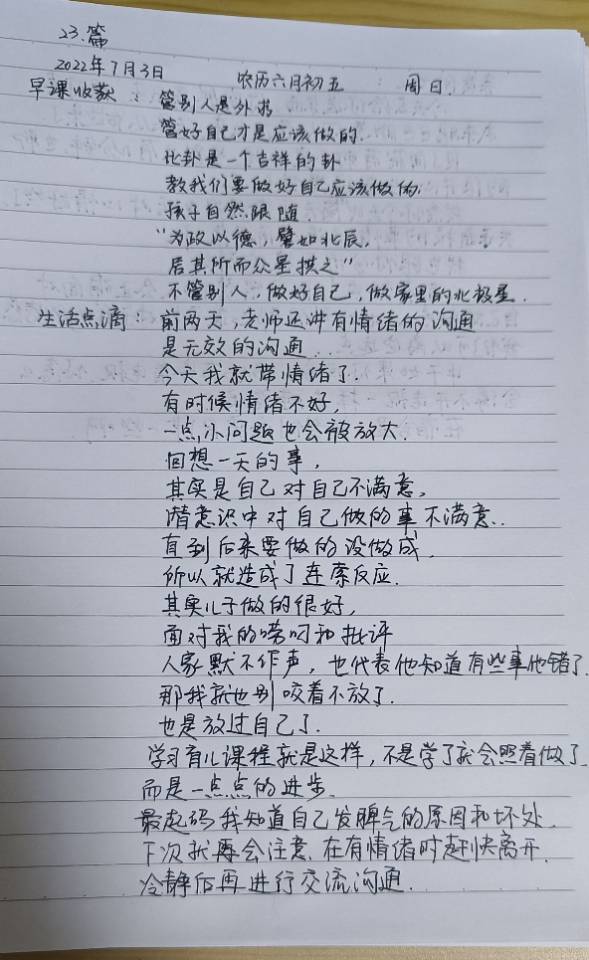 23.篇
2022年7月3日 农历六月初五 周日.
早课收款: 管别人是外求
管好自己才是应该做的.
比卦是一个吉祥的卦
教我们要做好自己应该做的.
孩子自然跟随
"为政以德,譬如北辰,
居其所而众星拱之"
不管别人,做好自己,做家里的北极星.
生活点滴: 前两天,老师还讲有情绪的沟通
是无效的沟通...
今天我就带情绪了.
有时候情绪不好,
一点小问题也会被放大.
回想一天的事,
其实是自己对自己不满意,
潜意识中对自己做的事不满意..
直到后来要做的没做成,
所以就造成了连索反应.
其实儿子做的很好,
面对我的唠叨和批评
人家默不作声,也代表他知道有些事他错了.
那我就也别咬着不放了.
也是放过自己了.
学习育儿课程就是这样,不是学了就会照着做了.
而是一点点的进步.
最起码我知道自己发脾气的原因和坏处.
下次就再会注意.在有情绪时赶快离开.
冷静后再进行交流沟通.